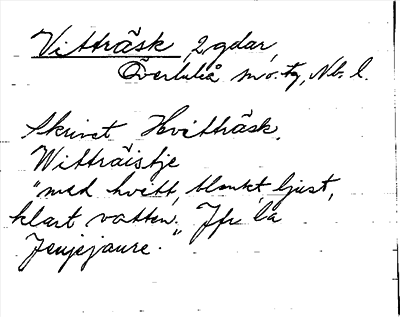 Vitträsk, 2 gdar,
Överluleå sn o. tg, Nb. l.
Skrivet Hvitträsk,
Witträistje
"med hvitt, blankt, ljust,
klart vatten." Jfr la
Jeujejaure.